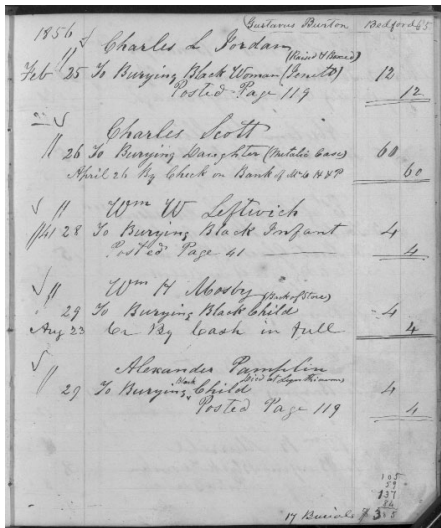 Gustavus Burton Bedford 65
1856
Charles L Jordan
(Raised & Haired)
Feb 25 To Burying Black Woman (Jenett) 12
Posted Page 119 12
Charles Scott
" 26 To Burying Daughter (Metalic Case) 60
April 26 By Check on Bank of 60
" Wm W Leftwich
28 To Burying Black Infant 4
Posted Page 41 4
" Wm H Mosby
(Back of Store)
29 To Burying Black Child 4
Aug 23 Cr By Cash in full 4
Alexander Pamplin
" 29 To Burying Black Child 4
Posted Page 119 4
105
59
137
86
17 Burials